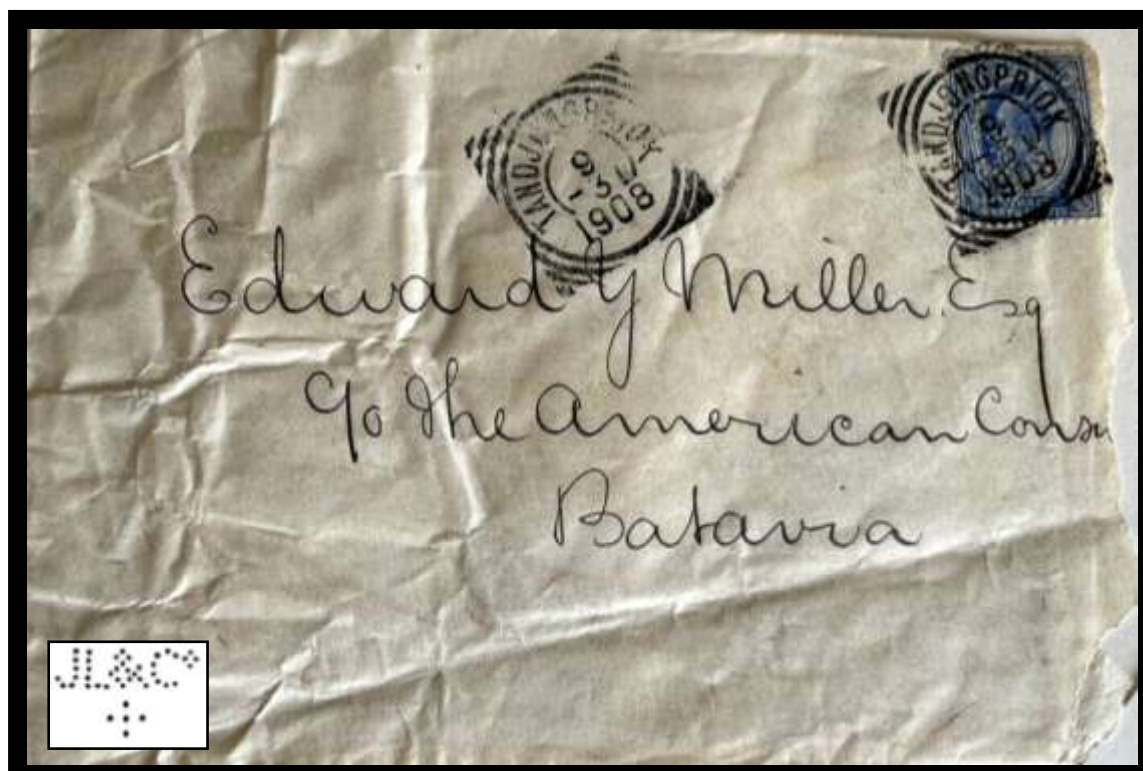 TANDJONGPRIOK
1908
TANDJONGPRIOK
1908
Edward G Miller. Esq
c/o The American Consu
Batavia
JL&Co